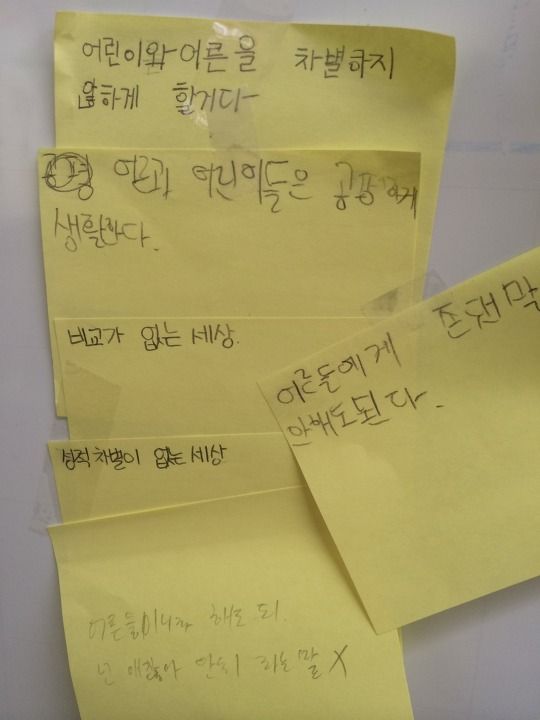 어린이와 어른을 차별하지
않하게 할거다
공평 어른과 어린이들은 공평하게
생활한다.
비교가 없는 세상.
성적차별이 없는 세상
어른들에게 존댓말
안해도된다.
어른들이니까 해도 되.
넌 애잖아 안되 라는 말 X